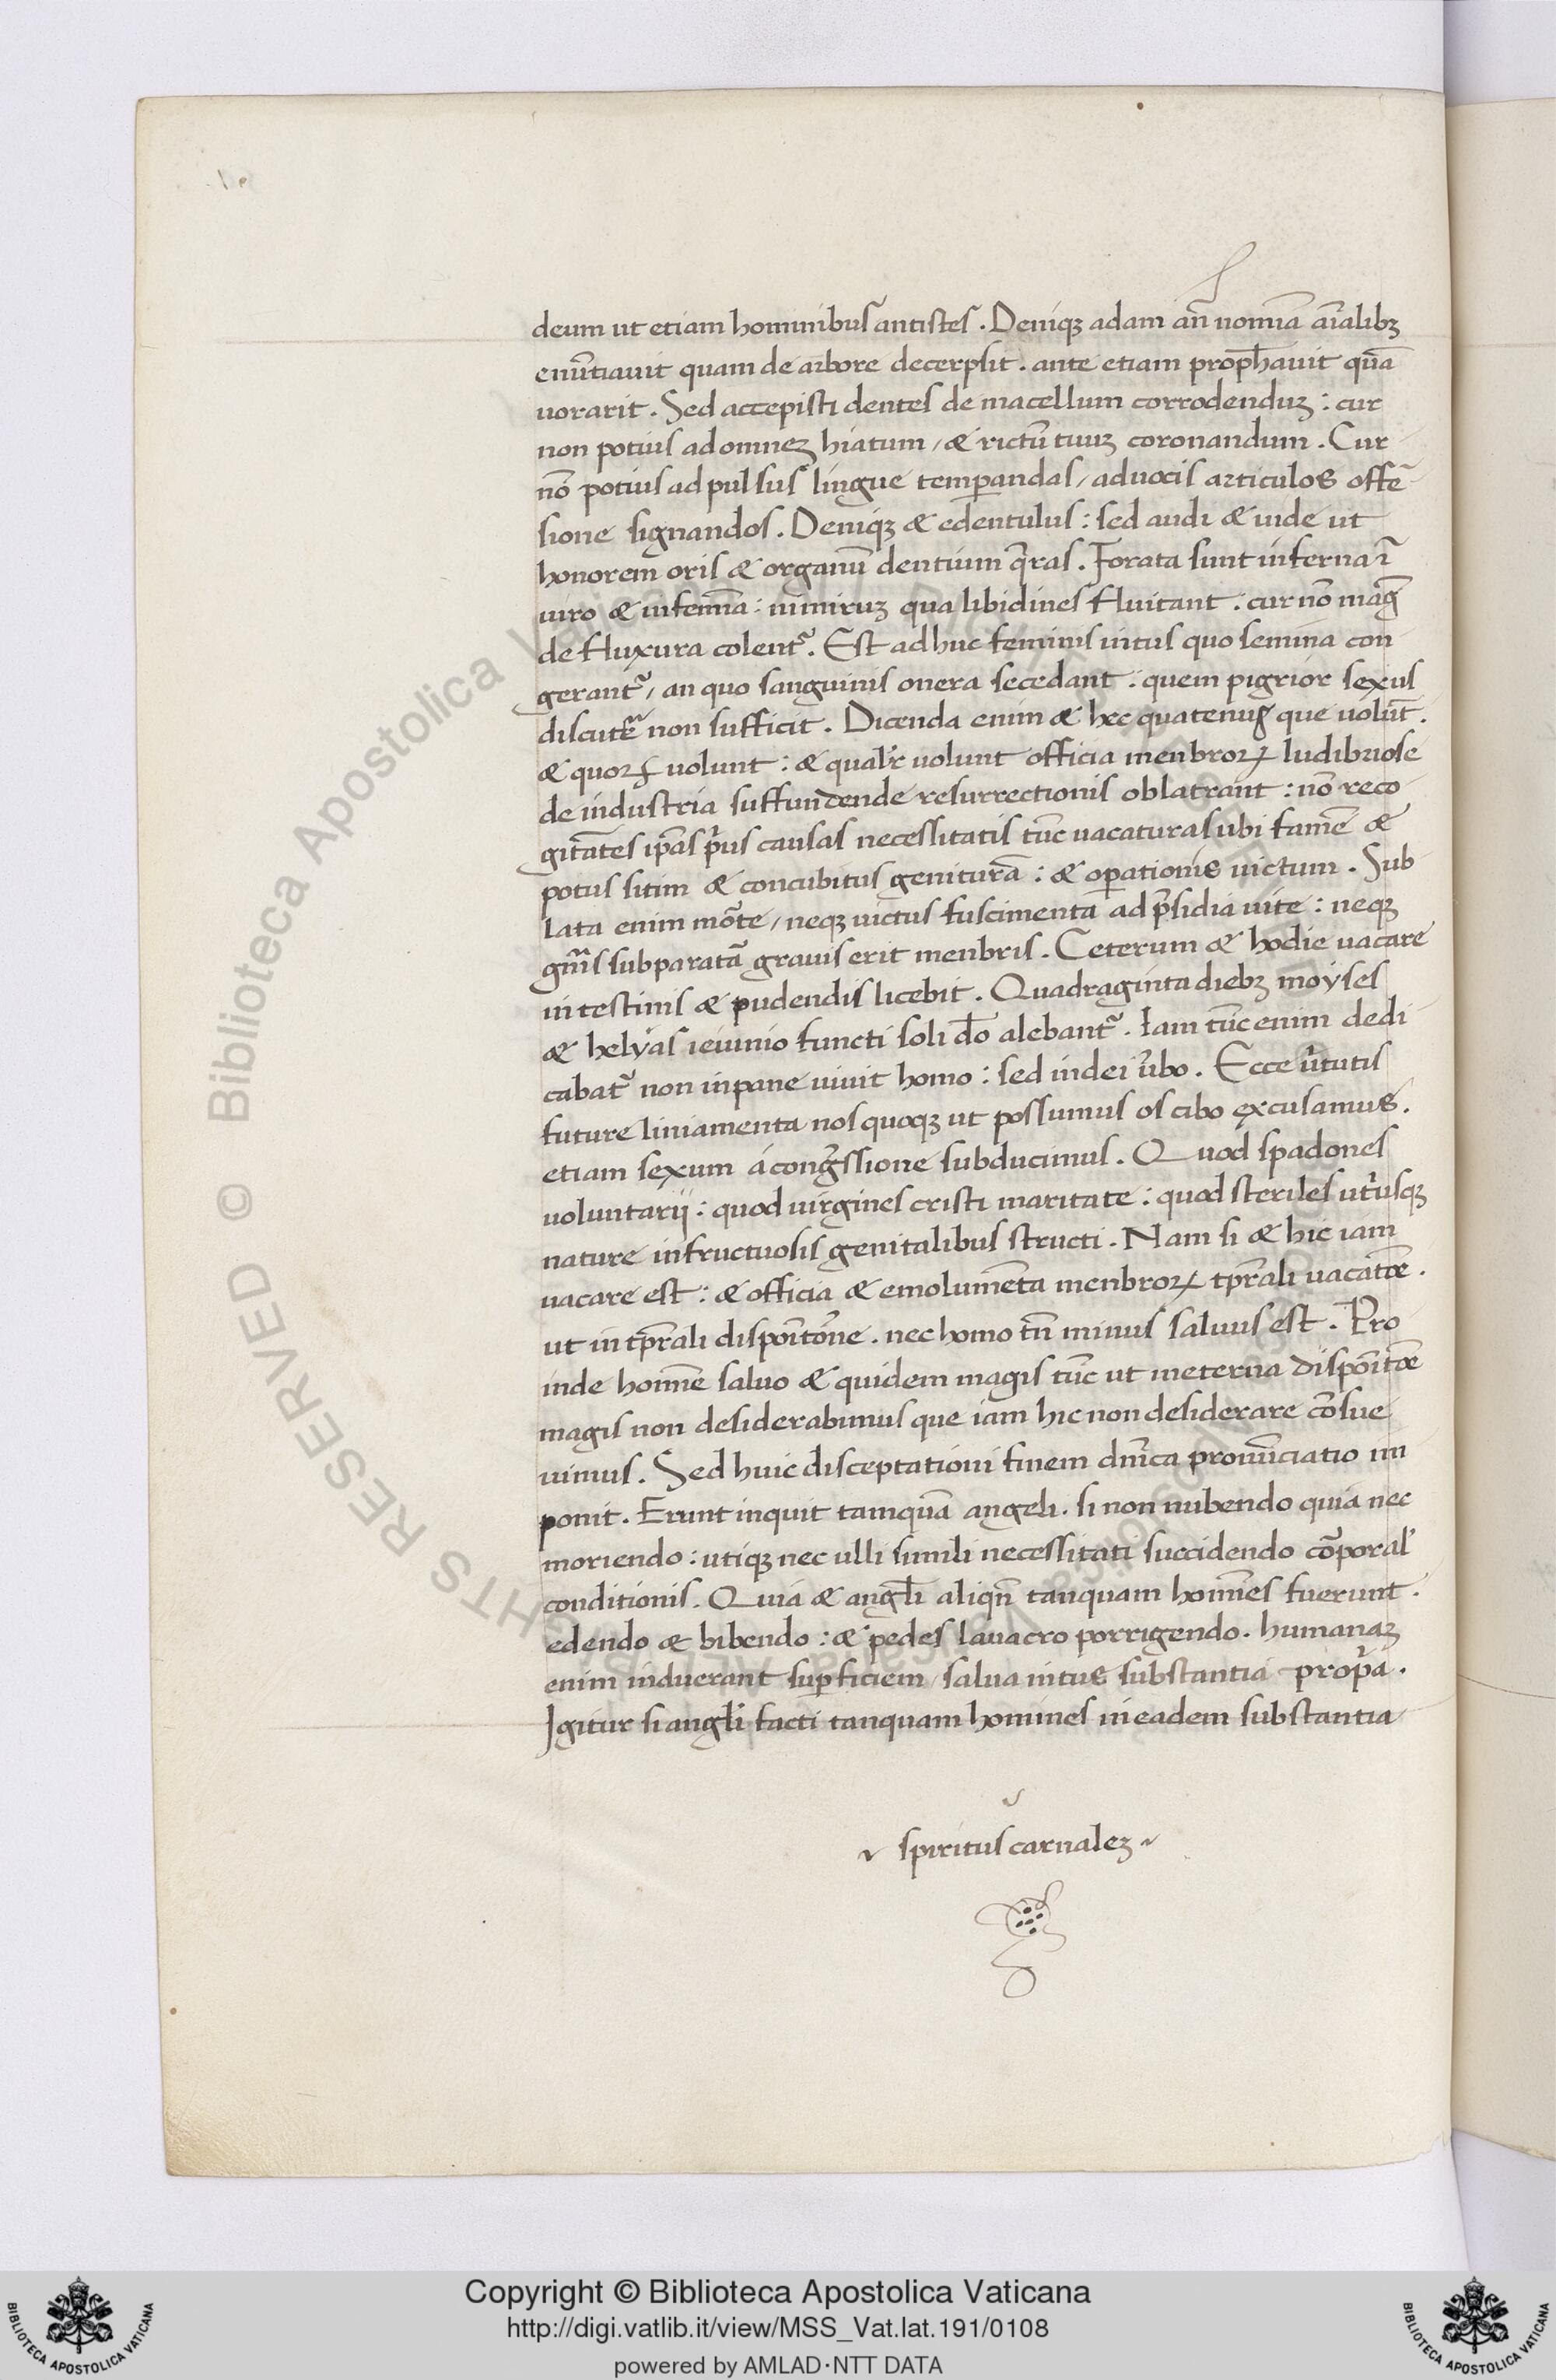 deum ut etiam hominibus antistes. Deniqꝫ adam an̄ nomīa aīalibꝫ
enūtiauit quam de arbore decerpsit. ante etiam prophauit quā
uorarit. Sed accepisti dentes de macellum corrodenduꝫ: cur
non potius ad omneꝫ hiatum / & rictū tuuꝫ coronandum. Cur
nō potius ad pulsus lingue temꝑandas / ad uocis articulos offē
sione signandos. Deniqꝫ & edentulus: sed audi & uide ut
honorem oris & organū dentium q̄ras. Forata sunt inferna ī
uiro & infemīa: nimiruꝫ qua libidines fluitant. cur nō maḡ
de fluxura colent᷑. Est ad huc feminis intus quo semina con
gerant᷑ / an quo sanguinis onera secedant: quem pigrior sexus
discute᷑ non sufficit. Dicenda enim & hec quatenus que uolūt.
& quoꝝ uolunt: & qualr̄ uolunt officia menbroꝝ ludibriose
de industria suffundende resurrectionis oblatrant: nō reco
gitātes ip̄as p̄us causas necessitatis tūc uacaturas ubi famē &
potus sitim & concubitus geniturā: & oꝑationis uictum. Sub
lata enim mōte / neqꝫ uictus fuscimenta ad p̄sidia uite: neqꝫ
gn̄is subparatā grauis erit menbris. Ceterum & hodie uacare
intestinis & pudendis licebit. Quadraginta diebꝫ moyses
& helyas ieiunio functi soli dō alebant᷑. Iam tūc enim dedi
cabat᷑ non inpane uiuit homo: sed indei ūbo. Ecce ūtutis
future liniamenta nos quoqꝫ ut possumus os cibo ęxcusamus.
etiam sexum a congr̄ssione subducimus. Quod spadones
uoluntarij: quod uirgines cristi maritate: quod steriles ut̄usqꝫ
nature infructuosis genitalibus structi. Nam si & hic iam
uacare est: & officia & emolumēta menbroꝝ tp̄rali uacatōe.
ut in tp̄rali dispoītōne. nec homo tn̄ minus saluus est. Pro
inde homīe saluo & quidem magis tūc ut ineterna dispoītōe
magis non desiderabimus que iam hic non desiderare cōsue
uimus. Sed huic disceptationi finem dn̄ica pronūciatio im
ponit. Erunt inquit tamquā angeli. si non nubendo quia nec
moriendo: utiqꝫ nec ulli simili necessitati succidendo cōporal᷑
conditionis. Quia & angl̄i aliqn̄ tanquam homīes fuerunt.
edendo & bibendo: & pedes lauacro porrigendo. humanaꝫ
enim induerant suꝑficiem / salua intus substantia prop̄a.
Igitur si angl̄i facti tanquam homines in eadem substantia
spiritus carnaleꝫ
© Biblioteca Apostolica Vaticana
Copyright © Biblioteca Apostolica Vaticana
http://digi.vatlib.it/view/MSS_Vat.lat.191/0108
powered by AMLAD·NTT DATA
BIBLIOTECA APOSTOLICA VATICANA
BIBLIOTECA APOSTOLICA VATICANA